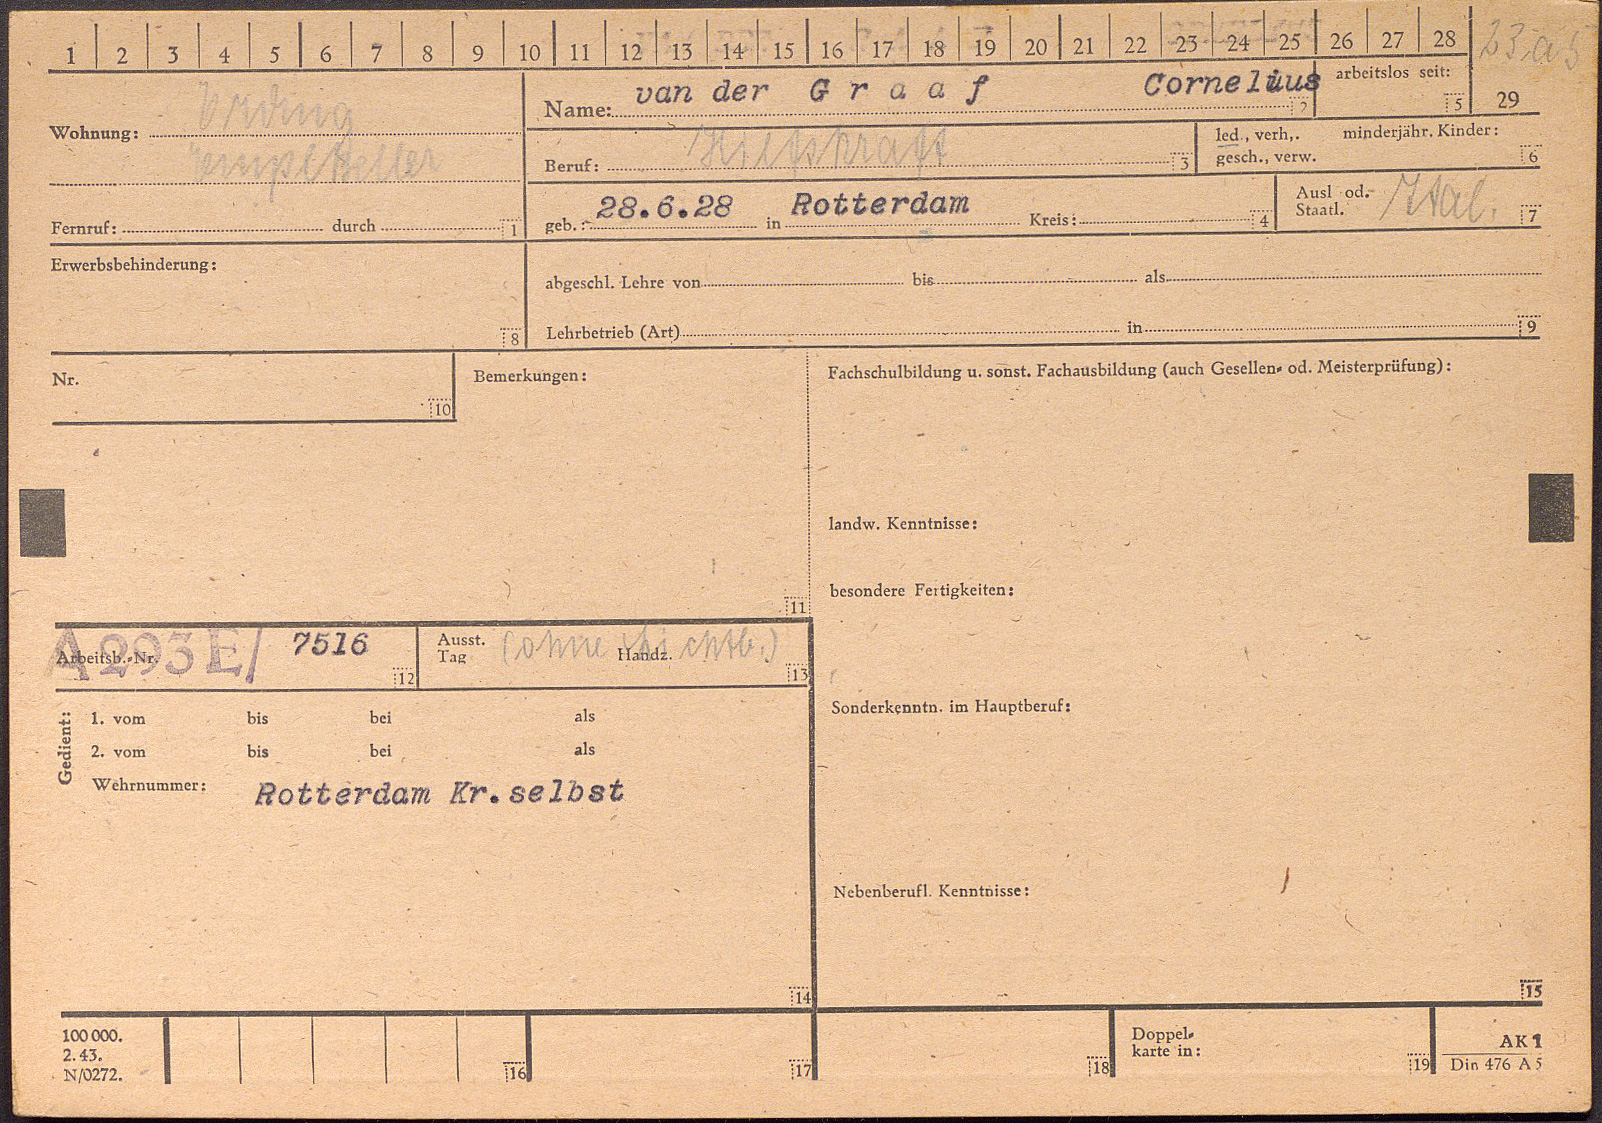 1 2 3 4 5 6 7 8 9 10 11 12 13 14 15 16 17 18 19 20 21 22 23 24 25 26 27 28 23 a 5
Wohnung: Erding
Name: van der Graaf Cornelius 2
arbeitslos seit: 5 29
Beruf: Hilfskraft 3
led., verh,. minderjähr. Kinder:
gesch., verw. 6
Fernruf: durch 1
geb.: 28.6.28 in Rotterdam Kreis: 4
Ausl od.
Staatl. Ital. 7
Erwerbsbehinderung: 8
abgeschl. Lehre von bis als
Lehrbetrieb (Art) in 9
Nr. 10
Bemerkungen: 11
Fachschulbildung u. sonst. Fachausbildung (auch Gesellen- od. Meisterprüfung):
landw. Kenntnisse:
besondere Fertigkeiten:
Arbeitsb.-Nr. A 293 E/ 7516 12
Ausst.
Tag (ohne sichtb.) Handz. 13
Gedient: 1. vom bis bei als
2. vom bis bei als
Wehrnummer: Rotterdam Kr.selbst
14
Sonderkenntn. im Hauptberuf:
Nebenberufl. Kenntnisse:
15
100 000.
2. 43.
N/0272.
16 17 18
Doppel-
karte in: 19
AK 1
Din 476 A 5